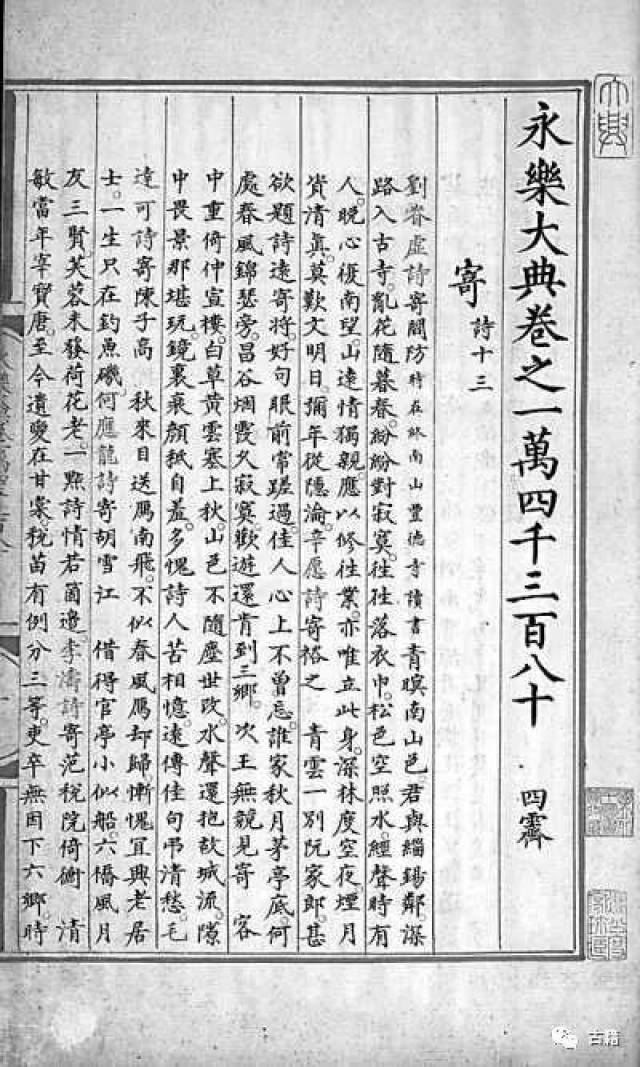 永樂大典卷之一萬四千三百八十 四霽
寄 詩十三
劉眘虛詩寄閻防時在終南山豐德寺讀書青暝南山邑君與緇錫鄰深
路入古寺亂花隨暮春紛紛對寂寞徃徃落衣巾松邑空照水經聲時有
人晚心復南望山遠情獨親應以修徃業亦唯立此身深林度空夜煙月
資清眞莫歎文明日彌年從隱淪辛愿詩寄裕之 青雲一別阮家郎甚
欲題詩遠寄將好句眼前常蹉過佳人心上不曾忘誰家秋月茅亭底何
處春風錦瑟旁昌谷烟霞久寂寞歡遊還肯到三鄉 次王無競見寄 客
中重倚仲宣樓白草黄雲塞上秋山邑不隨塵世改水聲還抱故城流隙
中畏景那堪玩鏡裏衰顔秪自羞多愧詩人苦相憶遠傳佳句弔清愁毛
達可詩寄陳子高 秋來目送鴈南飛不似春風鴈却歸慚愧宜興老居
士一生只在釣魚磯何應龍詩寄胡雪江 借得官亭小似船六橋風月
友三賢芙蓉未發荷花老一㸃詩情若箇邉李濤詩寄范稅院倚 清
敏當年宰寳唐至今遺愛在甘棠稅苗有例分三等吏卒無因下六鄉時
古籍